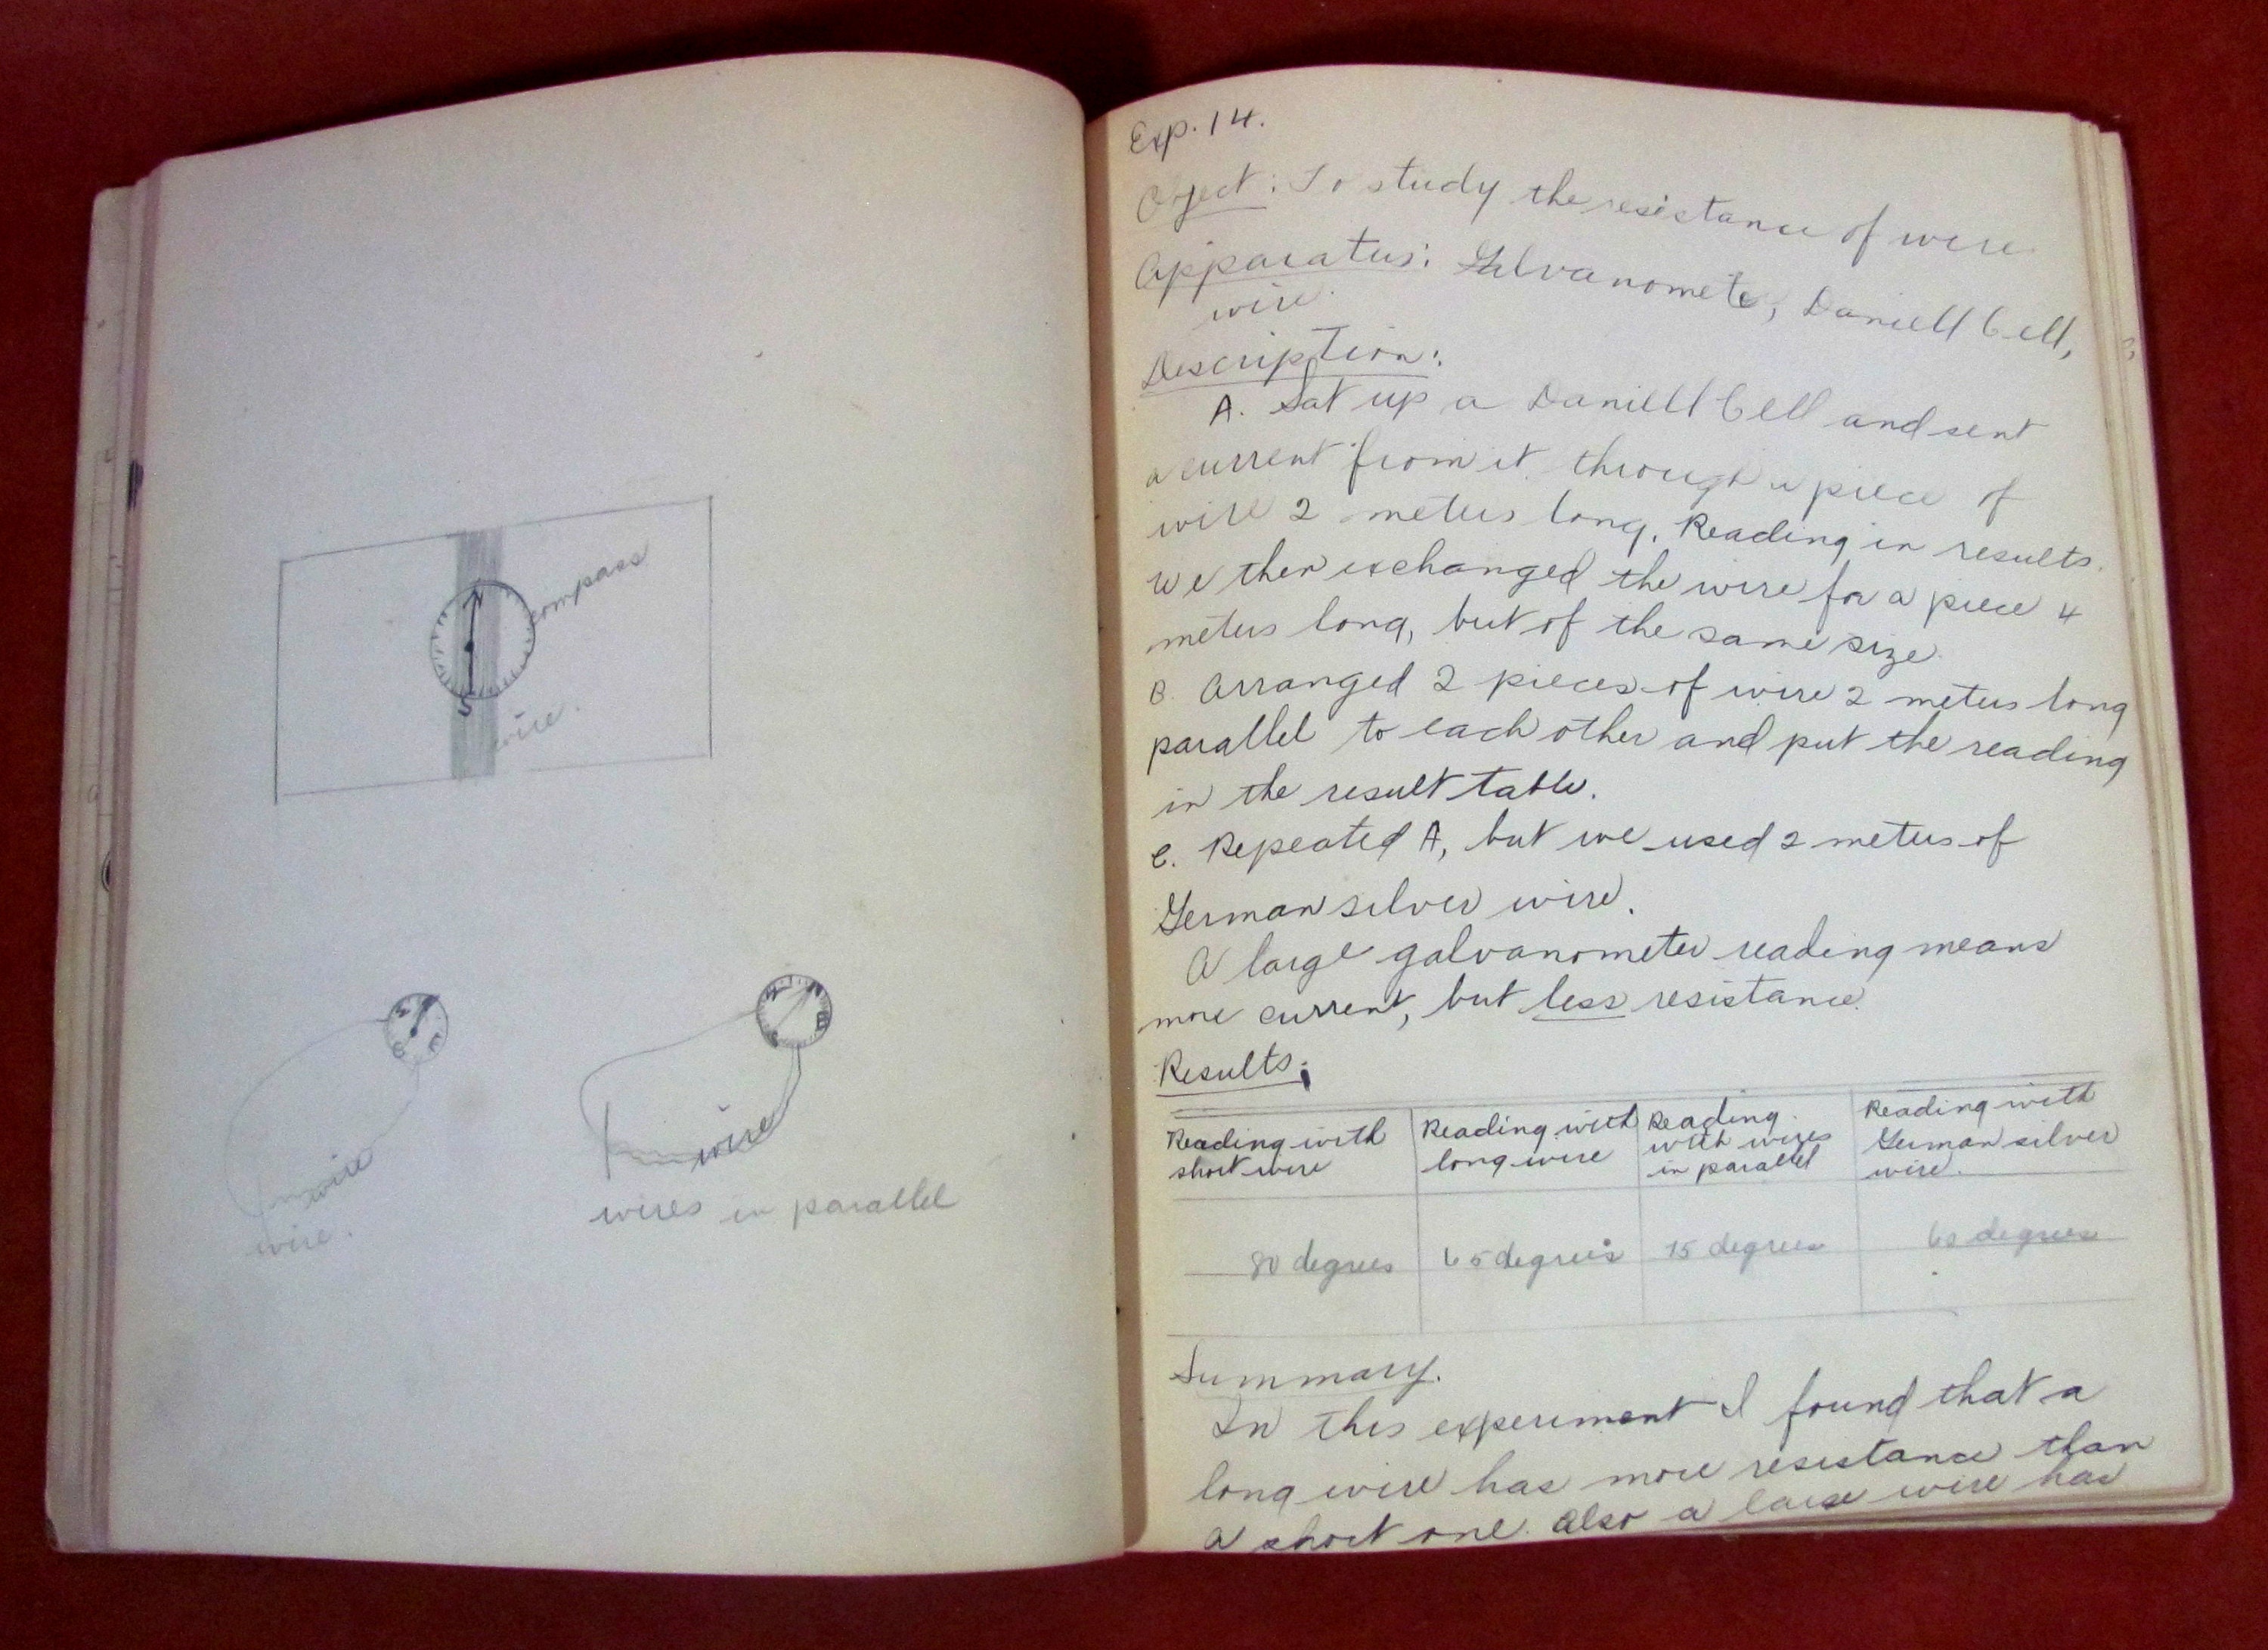 compass
wire.
wire
wire.
wire
wires in parallel
Exp. 14.
Object: To study the resistance of wire
Apparatus: Galvanomete, Daniell Cell,
wire.
Description:
A. Sat up a Daniell Cell and sent
a current from it through a piece of
wire 2 meters long. Reading in results.
We then exchanged the wire for a piece 4
meters long, but of the same size.
B. Arranged 2 pieces of wire 2 meters long
parallel to each other and put the reading
in the result table.
C. Repeated A, but we used 2 meters of
German silver wire.
A large galvanometer reading means
more current, but less resistance.
Results:
Reading with short wire
Reading with long wire
Reading with wires in parallel
Reading with German silver wire.
80 degrees
65 degrees
degrees
degrees
Summary.
In this experiment I found that a
long wire has more resistance than
a short one. Also a large wire has